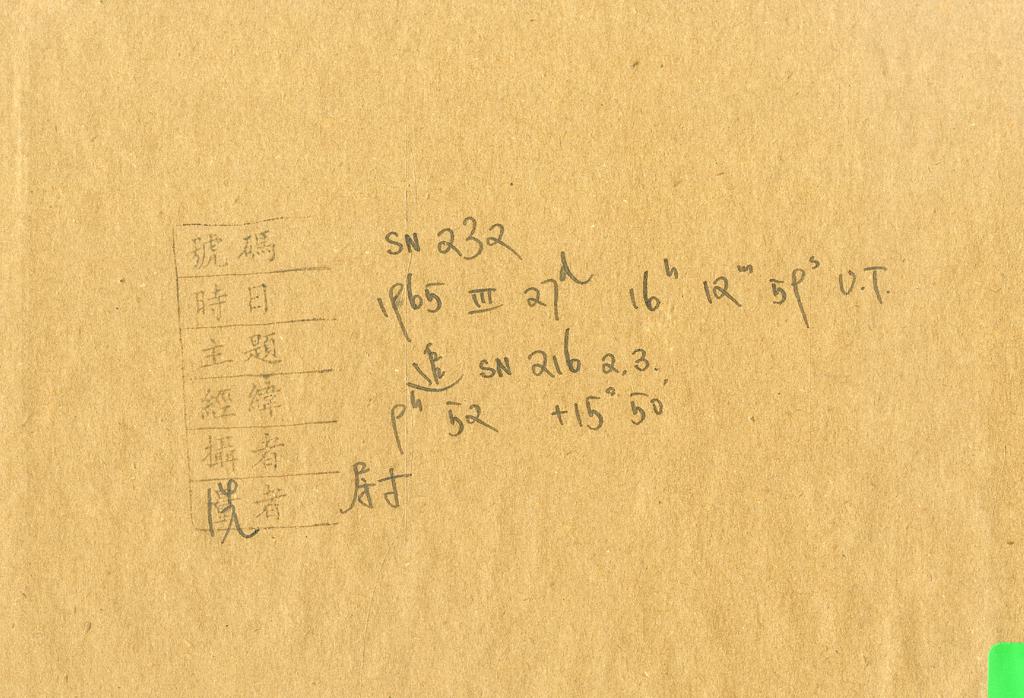 號碼 SN 232
時日 1965 III 27d 16h 12m 59s U.T.
主題 SN 216 2.3.
經緯 9h 52 +15° 50'
攝者
洗者